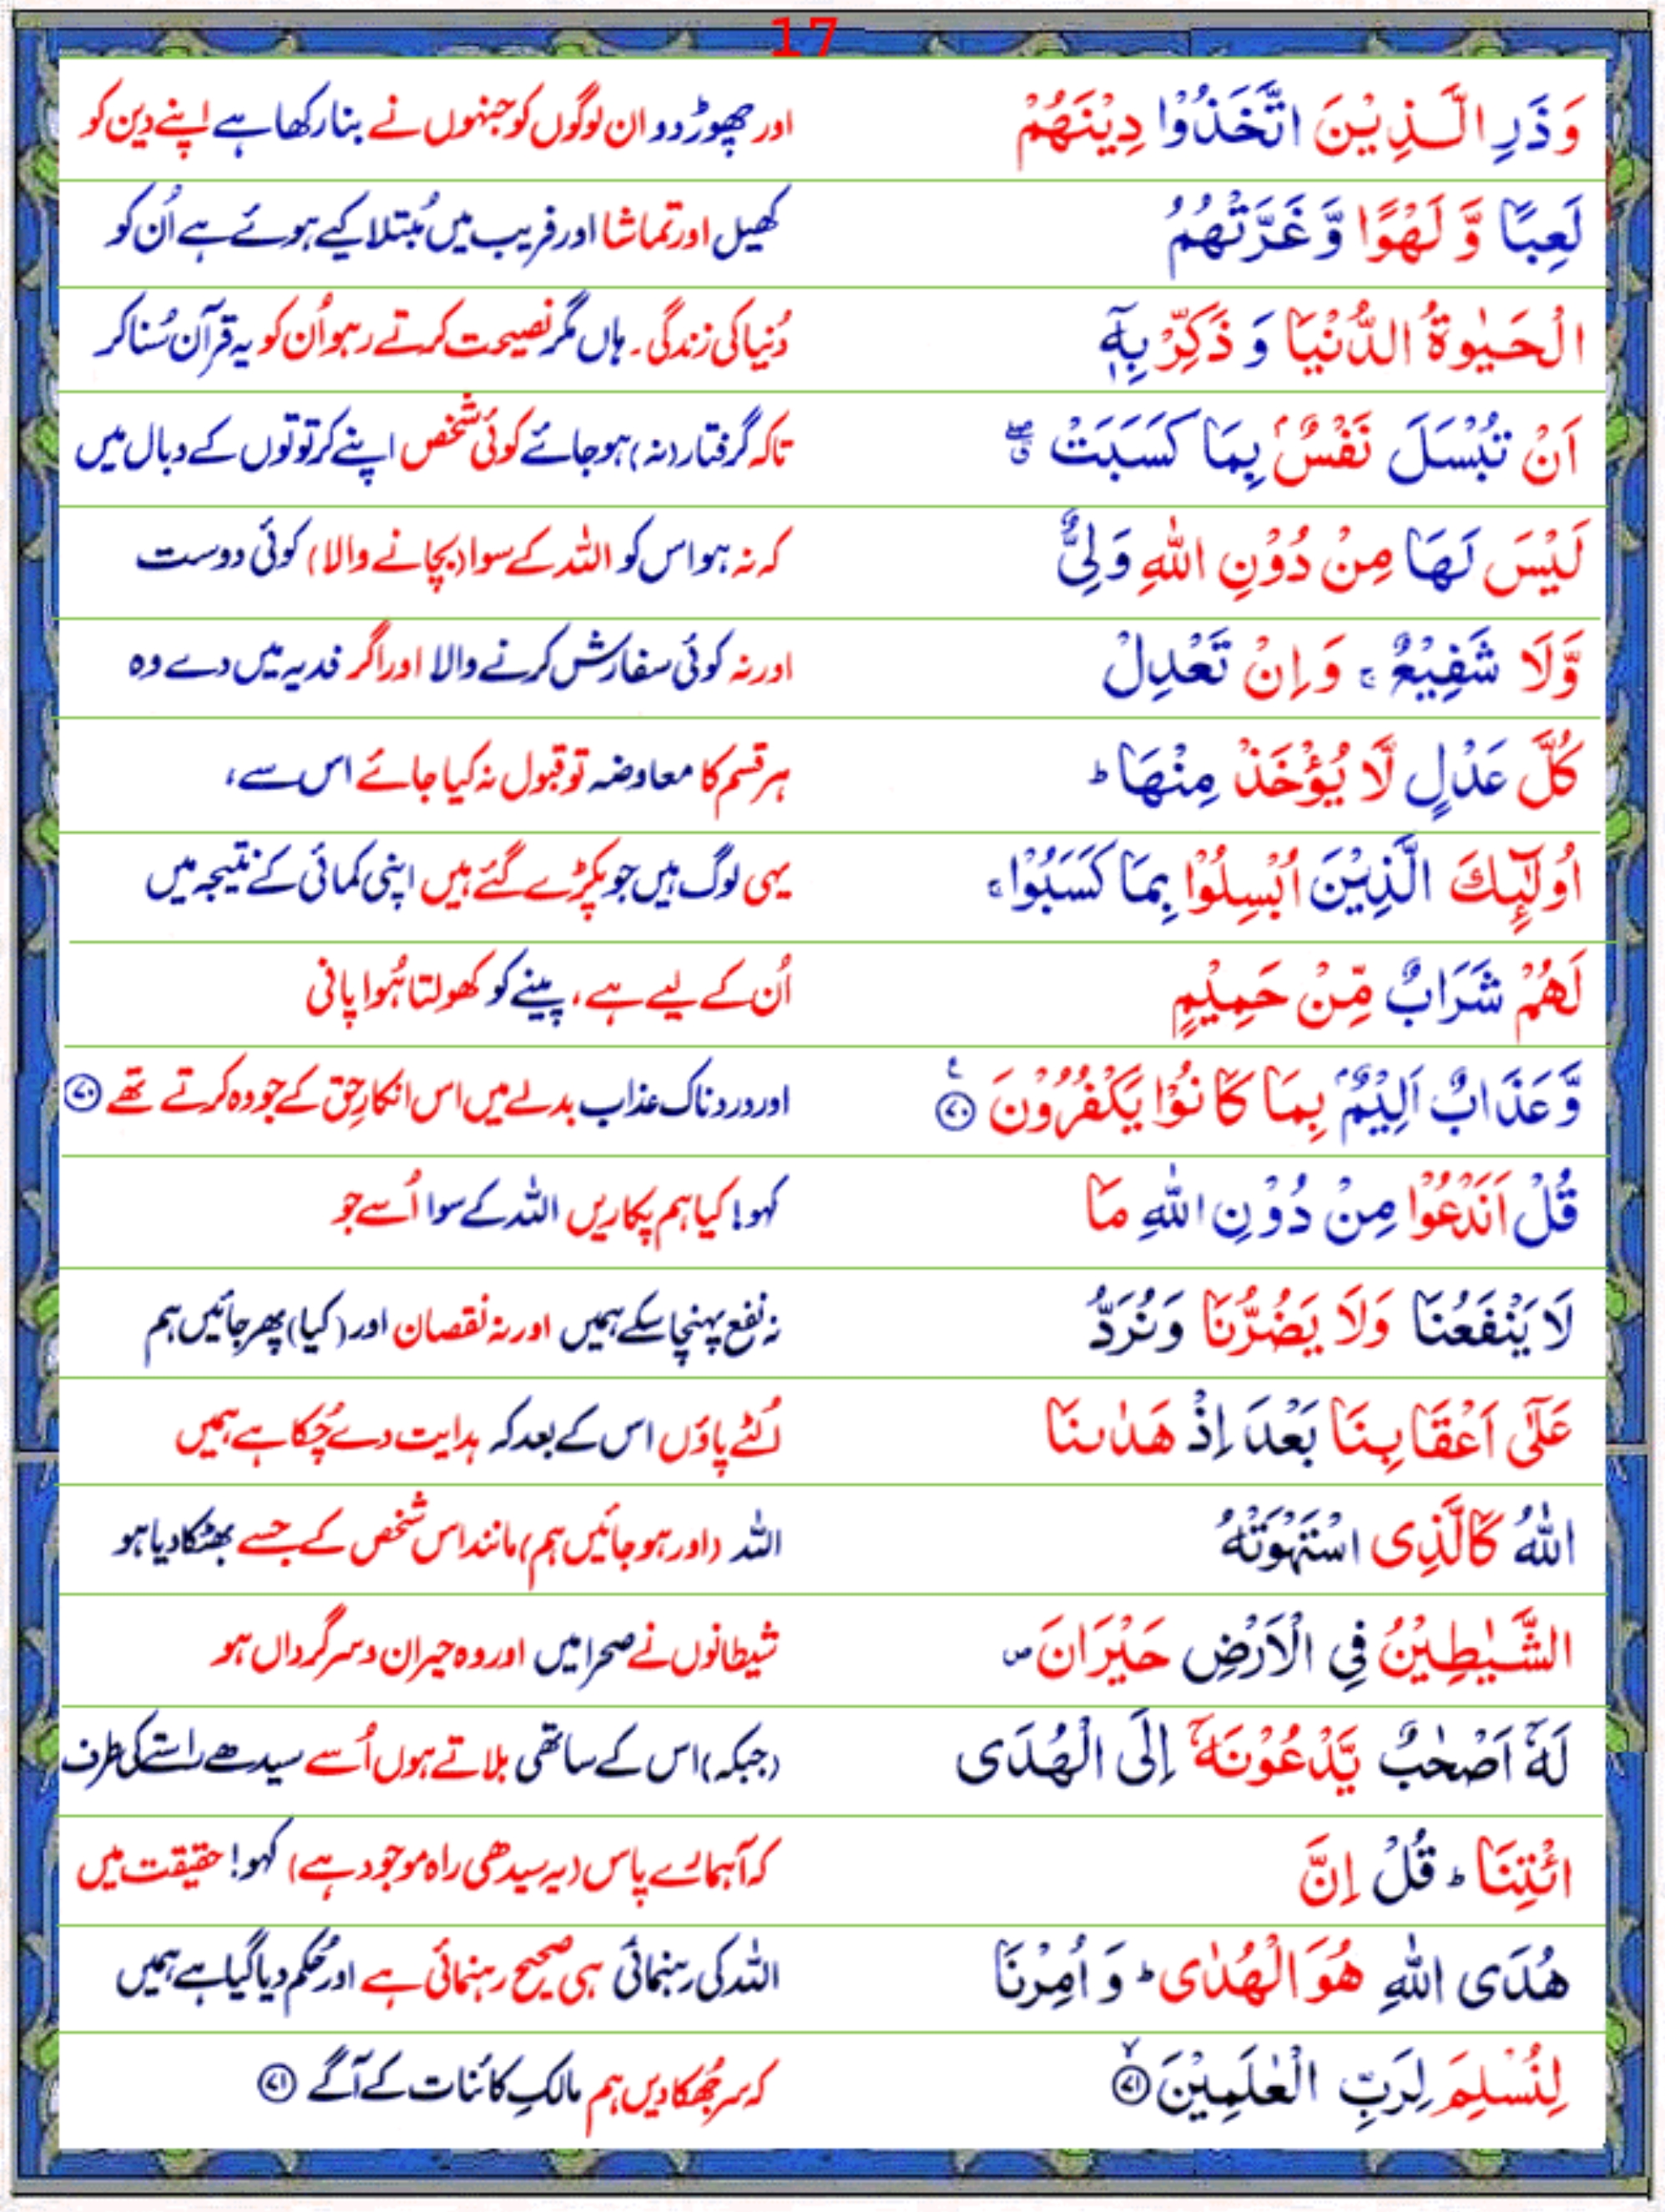 17
وَذَرِ الَّذِيْنَ اتَّخَذُوْا دِيْنَهُمْ اور چھوڑ دو ان لوگوں کو جنہوں نے بنا رکھا ہے اپنے دین کو
لَعِبًا وَّ لَهْوًا وَّ غَرَّتْهُمُ کھیل اور تماشا اور فریب میں مُبتلا کیے ہوئے ہے اُن کو
الْحَيٰوةُ الدُّنْيَا وَ ذَكِّرْ بِهٖۤ دُنیا کی زندگی۔ ہاں مگر نصیحت کرتے رہو اُن کو یہ قرآن سُنا کر
اَنْ تُبْسَلَ نَفْسٌۢ بِمَا كَسَبَتْ ۖۗ تاکہ گرفتار (نہ) ہو جائے کوئی شخص اپنے کرتوتوں کے وبال میں
لَيْسَ لَهَا مِنْ دُوْنِ اللّٰهِ وَلِيٌّ کہ نہ ہو اس کو اللہ کے سوا (بچانے والا) کوئی دوست
وَّلَا شَفِيْعٌ ۚ وَاِنْ تَعْدِلْ اور نہ کوئی سفارش کرنے والا اور اگر فدیہ میں دے وہ
كُلَّ عَدْلٍ لَّا يُؤْخَذْ مِنْهَا ؕ ہر قسم کا معاوضہ تو قبول نہ کیا جائے اس سے،
اُولٰٓئِكَ الَّذِيْنَ اُبْسِلُوْا بِمَا كَسَبُوْا ۚ یہی لوگ ہیں جو پکڑے گئے ہیں اپنی کمائی کے نتیجہ میں
لَهُمْ شَرَابٌ مِّنْ حَمِيْمٍ اُن کے لیے ہے، پینے کو کھولتا ہُوا پانی
وَّعَذَابٌ اَلِيْمٌۢ بِمَا كَانُوْا يَكْفُرُوْنَ ﴿۷۰﴾ ع اور دردناک عذاب بدلے میں اس انکارِ حق کے جو وہ کرتے تھے ﴿۷۰﴾
قُلْ اَنَدْعُوْا مِنْ دُوْنِ اللّٰهِ مَا کہو! کیا ہم پکاریں اللہ کے سوا اُسے جو
لَا يَنْفَعُنَا وَلَا يَضُرُّنَا وَنُرَدُّ نہ نفع پہنچا سکے ہمیں اور نہ نقصان اور (کیا) پھر جائیں ہم
عَلٰٓى اَعْقَابِنَا بَعْدَ اِذْ هَدٰىنَا اُلٹے پاؤں اس کے بعد کہ ہدایت دے چُکا ہے ہمیں
اللّٰهُ كَالَّذِى اسْتَهْوَتْهُ اللہ (اور ہو جائیں ہم) مانند اس شخص کے جسے بھٹکا دیا ہو
الشَّيٰطِيْنُ فِى الْاَرْضِ حَيْرَانَ ۪ شیطانوں نے صحرا میں اور وہ حیران و سرگرداں ہو
لَهٗۤ اَصْحٰبٌ يَّدْعُوْنَهٗۤ اِلَى الْهُدَى (جبکہ) اس کے ساتھی بلاتے ہوں اُسے سیدھے راستے کی طرف
ائْتِنَا ؕ قُلْ اِنَّ کہ آ ہمارے پاس (یہ سیدھی راہ موجود ہے) کہو! حقیقت میں
هُدَى اللّٰهِ هُوَ الْهُدٰى ؕ وَ اُمِرْنَا اللہ کی رہنمائی ہی صحیح رہنمائی ہے اور حُکم دیا گیا ہے ہمیں
لِنُسْلِمَ لِرَبِّ الْعٰلَمِيْنَ ﴿۷۱﴾ کہ سر جُھکا دیں ہم مالکِ کائنات کے آگے ﴿۷۱﴾